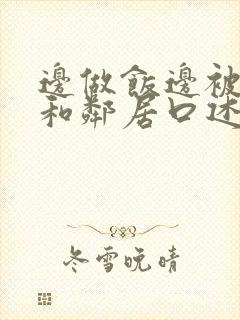 邊做飯邊被
和鄰居口述
冬雪晚晴